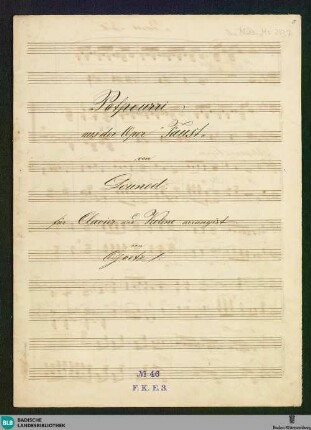 Potpourri
aus der Oper Faust.
von
Gounod
für Clavier und Violine arrangirt
von
№ 46
F. K. F. 3.
BLB BADISCHE
LANDESBIBLIOTHEK
Baden-Württemberg